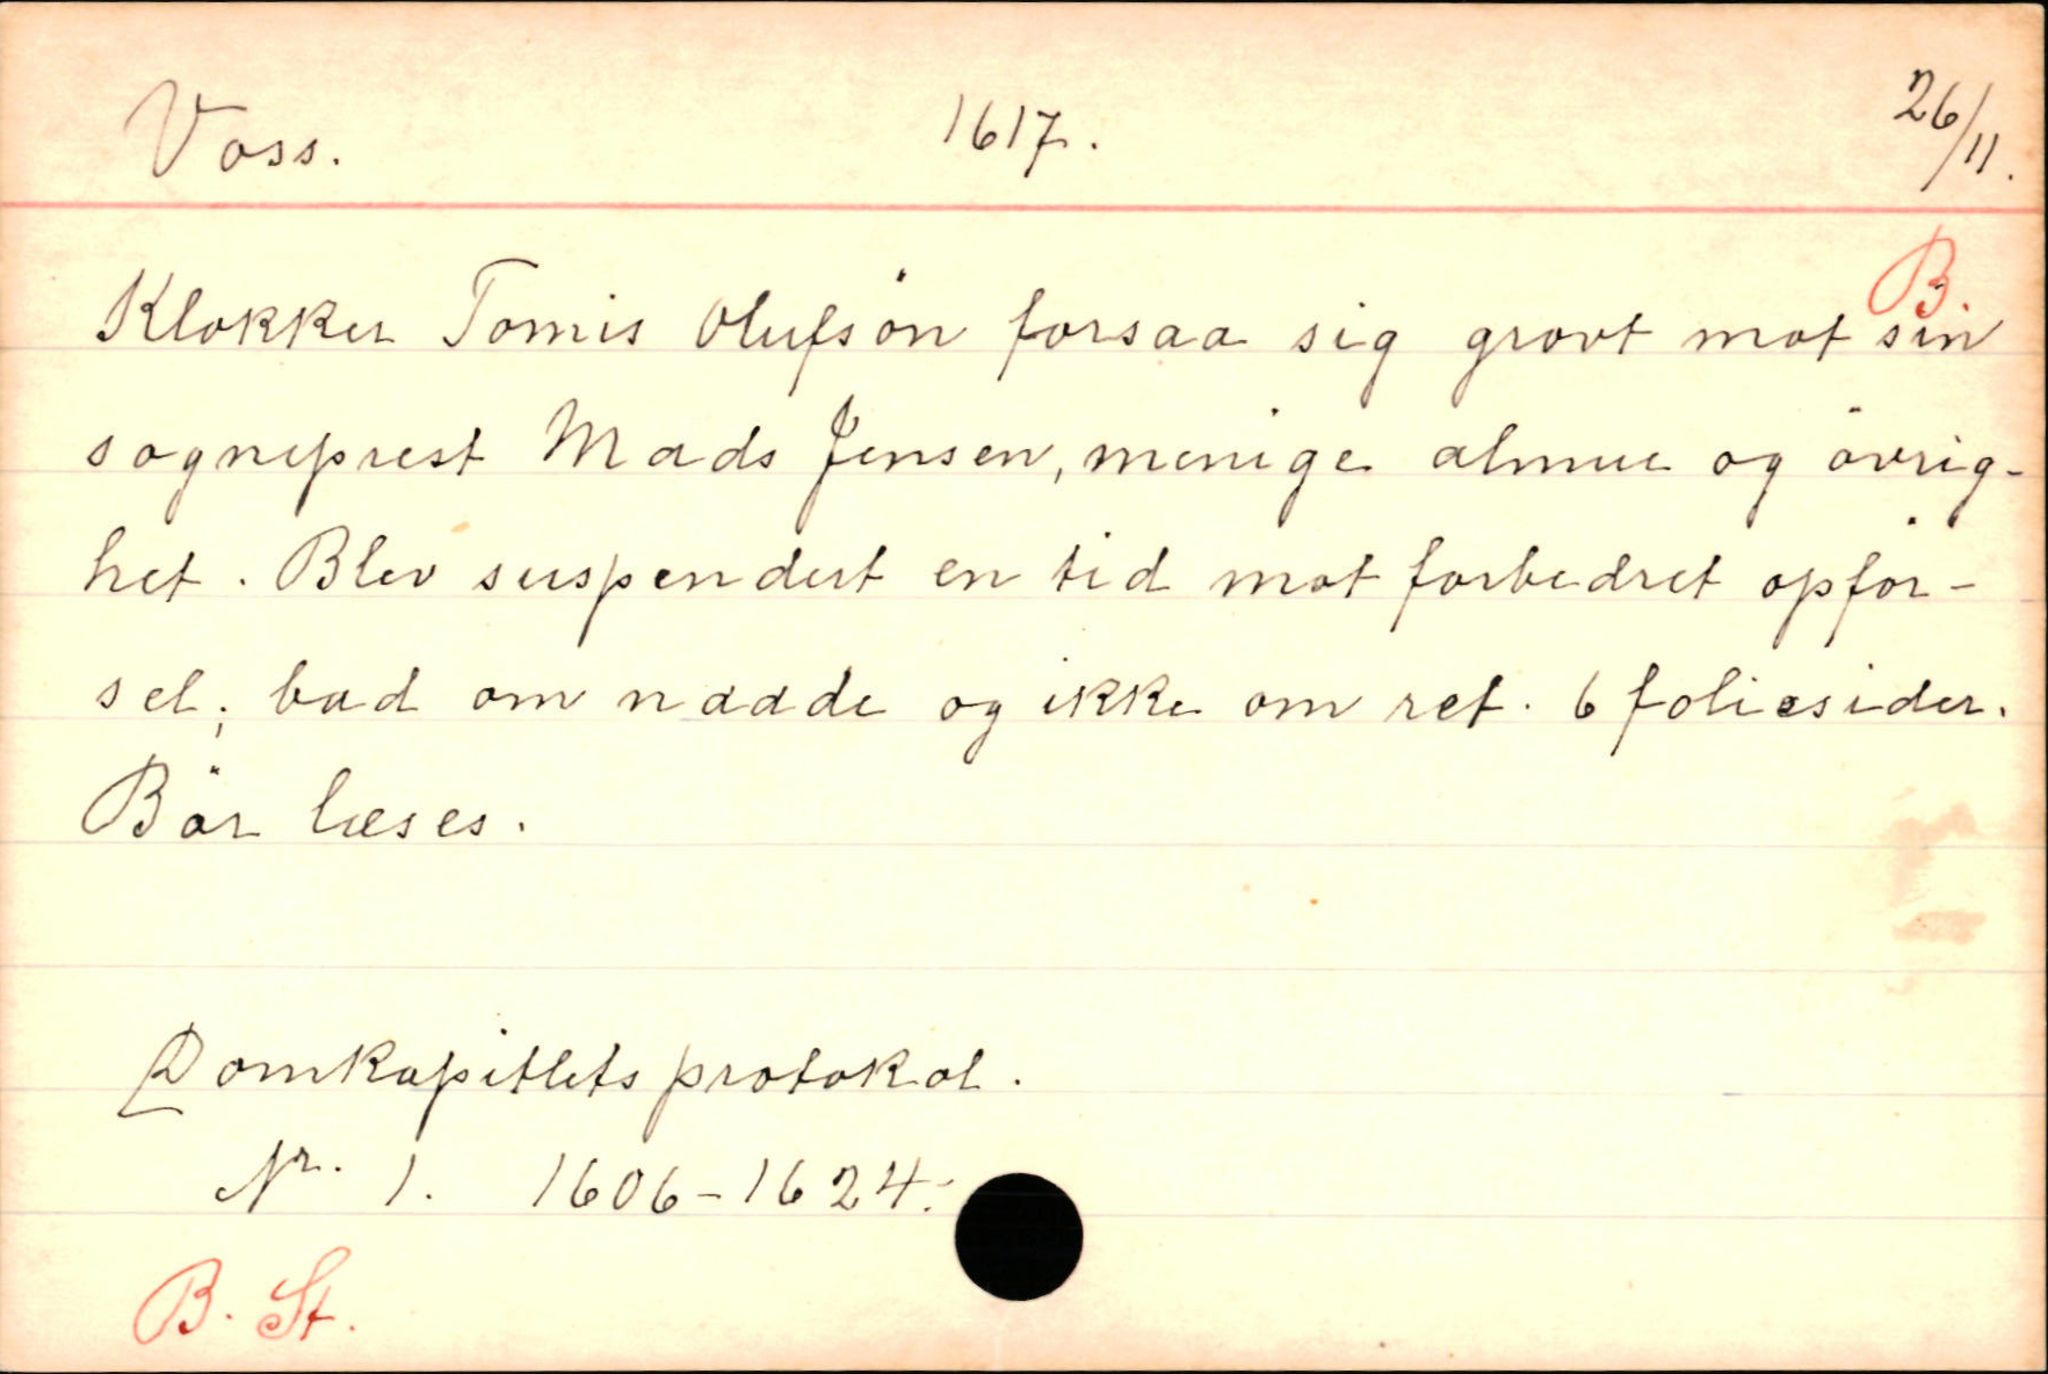 Voss. 1617. 26/11.
B.
Klokker Tomis Olufsön forsaa sig grovt mot sin
sogneprest Mads Jensen, menige almue og övrig-
het. Blev suspendert en tid mot forbedret opför-
sel; bad om naade og ikke om ret. 6 foliesider.
Bör læses.
Domkapitlets protokol.
Nr. 1. 1606-1624.
B. St.